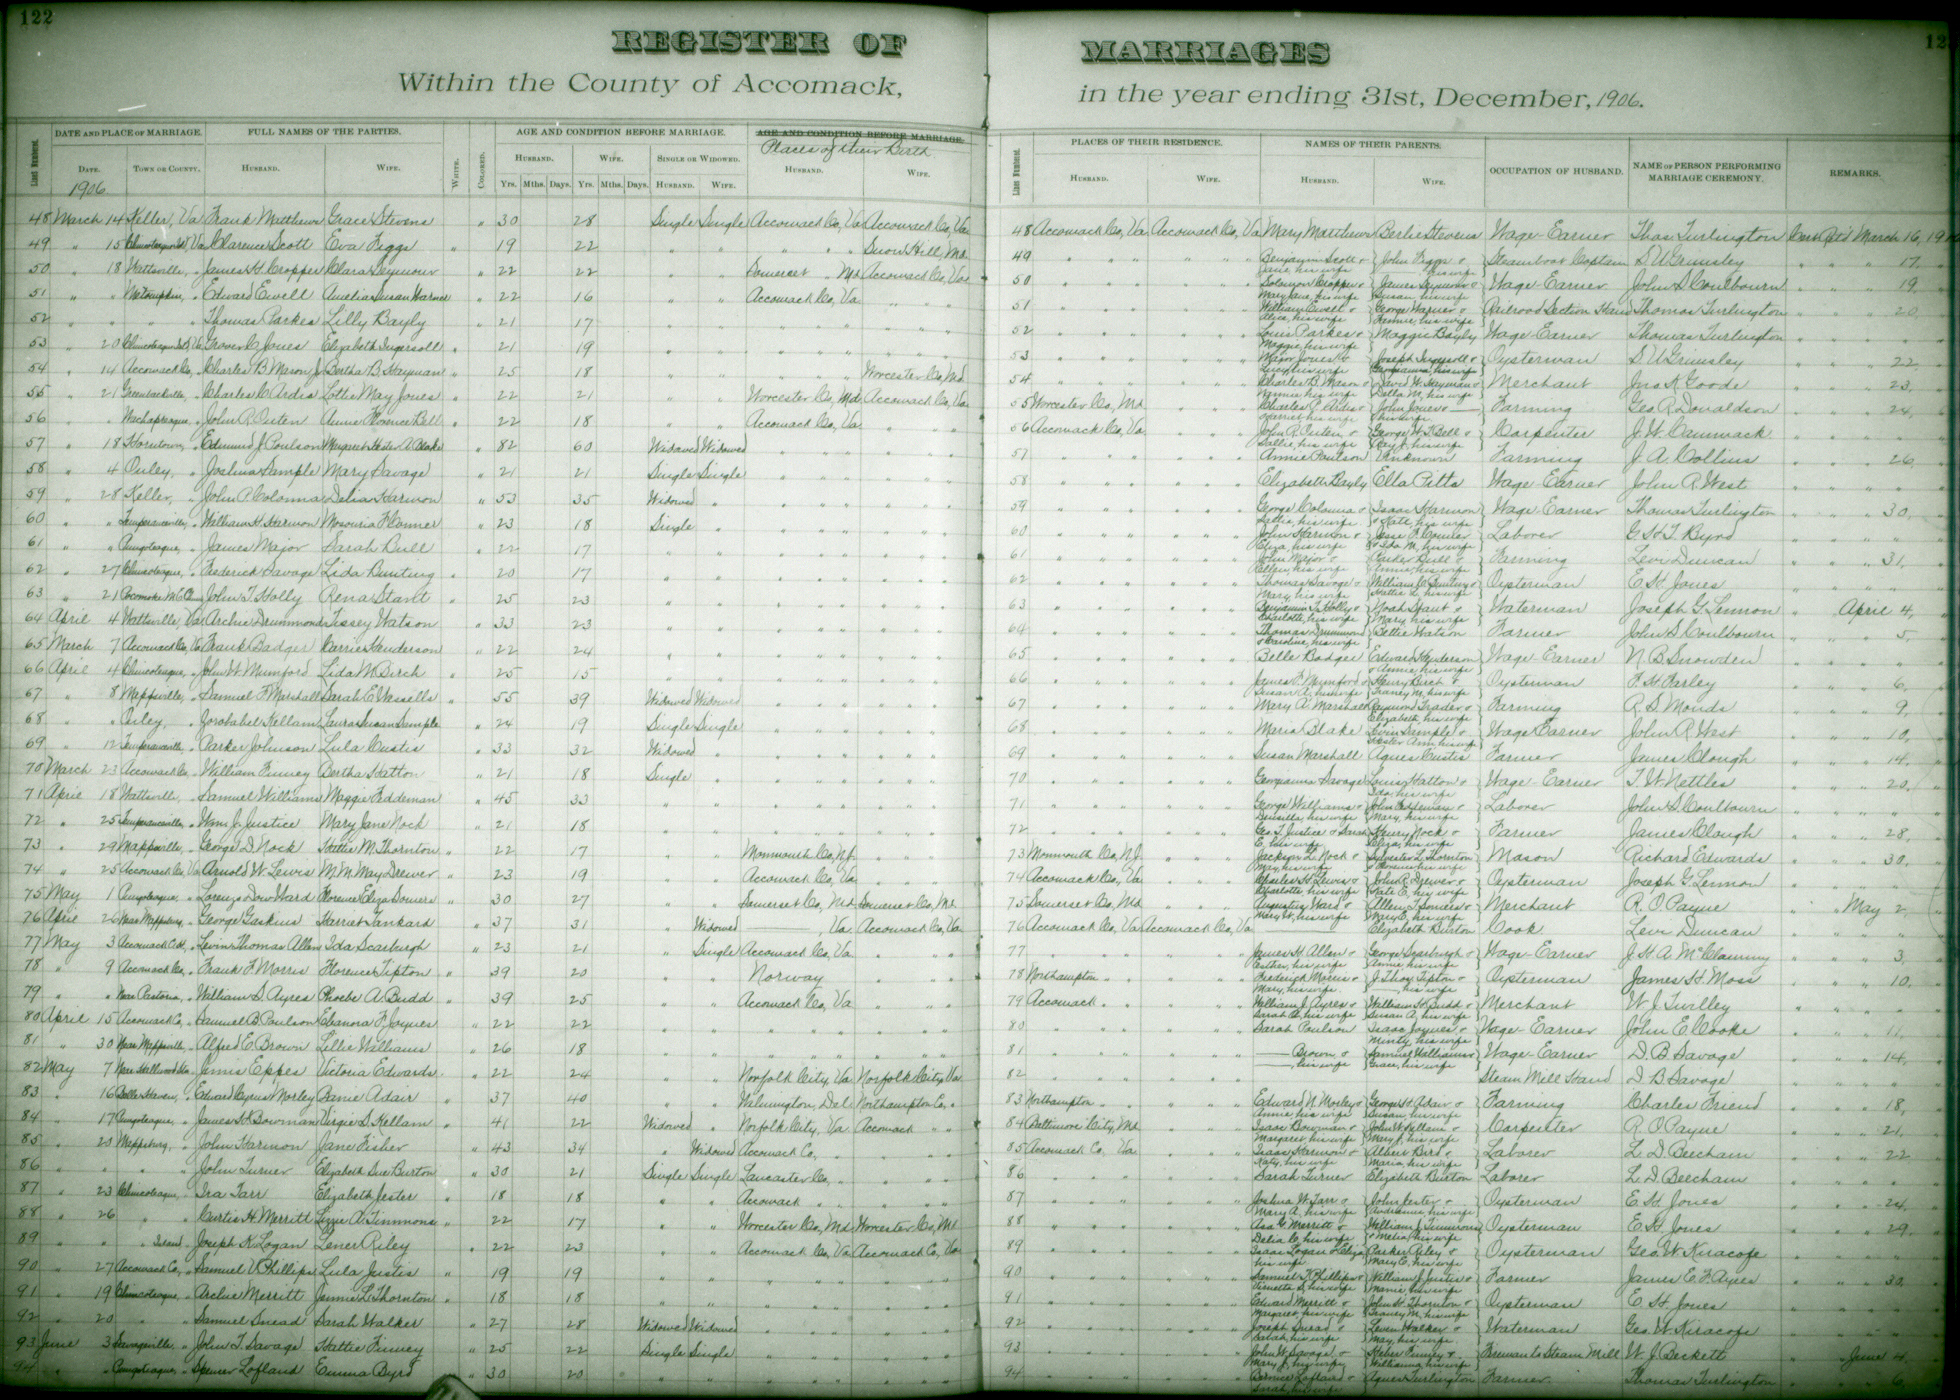 122
REGISTER OF MARRIAGES
Within the County of Accomack, in the year ending 31st, December, 1906.
Line Number. DATE AND PLACE OF MARRIAGE. FULL NAMES OF THE PARTIES. WHITE. COLORED. AGE AND CONDITION BEFORE MARRIAGE. AGE AND CONDITION BEFORE MARRIAGE.
Places of their Birth
DATE. TOWN OR COUNTY. HUSBAND. WIFE. HUSBAND. WIFE. SINGLE OR WIDOWED. HUSBAND. WIFE.
1906 Yrs. Mths. Days. Yrs. Mths. Days. HUSBAND. WIFE.
48 March 14 Keller, Va Frank Matthews Grace Stevens " 30 28 Single Single Accomack Co, Va Accomack Co, Va
49 " 15 Clarence Scott Eva Figgs " 19 22 " " " " " Snow Hill, Md
50 " 18 Wattsville, " James H. Cropper Clara Seymour " 22 22 " " Somerset " Md Accomack Co, Va
51 " " Metompkin, " Edward Ewell Amelia Susan Warner " 22 16 " " Accomack Co, Va " " "
52 " " " " Thomas Parkes Lilly Bayly " 21 17
53 " 20 Grover C. Jones Elizabeth Ingersoll " 21 19
54 " 14 Accomack Co, " Charles B Mason Jr Bertha B. Hayman " 25 18 Worcester Co, Md
55 " 21 Greenbackville, " Charles C. Ardis Lottie May Jones " 22 21 Worcester Co, Md Accomack Co, Va
56 " " Wachapreague, " John R. Outen Annie Florence Bell " 22 18 Accomack Co, Va
57 " 18 Horntown, " Edmund J. Poulson Margaret Hester A Blake " 82 60 Widowed Widowed
58 " 4 Onley, " Joshua Sample Mary Savage " 21 21 Single Single
59 " 28 Keller, " John P. Colonna Delia Harmon " 53 35 Widowed "
60 " " Temperanceville, " William H. Harmon Missouria F Conner " 23 18 Single "
61 " " Pungoteague, " James Major Sarah Bull " 22 17
62 " 27 Chincoteague, " Frederick Savage Lida Bunting " 20 17
63 " 21 John T. Holly Rena Stant " 25 23
64 April 4 Wattsville, Va Archie Drummond Tissey Watson " 33 23
65 March 7 Accomack Co, Va Frank Badger Carrie Henderson " 22 24
66 April 4 Chincoteague, " John W. Mumford Lida M. Birch " 25 15
67 " 8 Mappsville, " Samuel F. Marshall Sarah E. Wessells " 55 39 Widowed Widowed
68 " " Onley, " Zorobabel Kellam Laura Susan Sample " 24 19 Single Single
69 " 12 Temperanceville, " Parker Johnson Lula Custis " 33 32 Widowed "
70 March 23 Accomack Co, " William Finney Bertha Hatton " 21 18 Single "
71 April 18 Wattsville, " Samuel Williams Maggie Feddeman " 45 33
72 " 25 Temperanceville, " Wm. J. Justice Mary Jane Nock " 21 18
73 " 29 Mappsville, " George D. Nock Hattie M. Thornton " 22 17 Monmouth Co, N.J.
74 " 25 Accomack Co, Va Arnold W. Lewis M. M. May Drewer " 23 19 Accomack Co, Va
75 May 1 Pungoteague, " Lorenzo Dow Ward Florence Eliza Somers " 30 27 Somerset Co, Md Somerset Co, Md
76 April 26 Near Mappsburg, " George Gaskins Harriet Tankard " 37 31 " Widowed ———, Va. Accomack Co, Va
77 May 3 Accomack C.H. Levin Thomas Allen Ida Scarburgh " 23 21 " Single Accomack Co, Va
78 " 9 Accomack Co, " Frank F. Morris Florence Tipton " 39 20 Norway
79 " " Near Pastoria, " William S. Ayres Phoebe A. Budd " 39 25 Accomack Co, Va
80 April 15 Accomack Co, " Samuel B. Poulson Eleanora F. Joynes " 22 22
81 " 30 Near Mappsville, " Alfred E. Brown Lillie Williams " 26 18
82 May 7 James Eppes Victoria Edwards " 22 24 Norfolk City, Va Norfolk City, Va
83 " 16 Belle Haven, " Edward Cyrus Worley Annie Adair " 37 40 Wilmington, Del Northampton Co, "
84 " 17 Pungoteague, " James H. Bowman Virgie S. Kellam " 41 22 Widowed " Norfolk City, Va Accomack " "
85 " 20 Mappsburg, " John Harmon Jane Fisher " 43 34 " Widowed Accomack Co,
86 " " " " John Turner Elizabeth Sue Burton " 30 21 Single Single Lancaster Co,
87 " 23 Chincoteague, " Ira Tarr Elizabeth Jester " 18 18 Accomack
88 " 26 " " Curtis H. Merritt Lizzie A. Timmons " 22 17 Worcester Co, Md Worcester Co, Md
89 " " " Island " Joseph K. Logan Lener Riley " 22 23 Accomack Co, Va Accomack Co, Va
90 " 27 Accomack Co, " Samuel V. Phillips Lula Justis " 19 19
91 " 19 Chincoteague, " Archie Merritt Jennie L. Thornton " 18 18
92 " 20 " " Samuel Snead Sarah Walker " 27 28 Widowed Widowed
93 June 3 Savageville, " John T. Savage Hattie Finney " 25 22 Single Single
94 " " Pungoteague, " Spencer Lofland Emma Byrd " 30 20
12
Line Number. PLACES OF THEIR RESIDENCE. NAMES OF THEIR PARENTS. OCCUPATION OF HUSBAND. NAME OF PERSON PERFORMING MARRIAGE CEREMONY. REMARKS.
HUSBAND. WIFE. HUSBAND. WIFE.
48 Accomack Co, Va Accomack Co, Va Mary Matthews Bertie Stevens Wage Earner Thos Turlington March 16, 19
49 Benjamin Scott & Jane, his wife John Figgs & his wife Steamboat Captain S. U. Grimsley 17,
50 Solomon Cropper & Mary Jane, his wife James Seymour & Susan, his wife Wage Earner John S. Coulbourn 19,
51 William Ewell & Alice, his wife George Warner & Fannie, his wife Railroad Section Hand Thomas Turlington 20,
52 Louis Parkes & Maggie, his wife Maggie Bayly Wage Earner Thomas Turlington
53 Major Jones & Lucy, his wife Joseph Ingersoll & Georgianna, his wife Oysterman S. U. Grimsley 22,
54 Charles B. Mason & his wife David W. Hayman & Della M, his wife Merchant Jno. K. Goode 23,
55 Worcester Co, Md Charles P. Ardis & Harriet, his wife John Jones & —— his wife Farming Geo R. Donaldson 24,
56 Accomack Co, Va John R. Outen & Sallie, his wife George W. T. Bell & his wife Carpenter J. W. Cammack
57 Annie Poulson Unknown Farming J. A. Collins 26,
58 Elizabeth Bayly Ella Pitts Wage Earner John R. West
59 George Colonna & Sallie, his wife Isaac Harmon & Kate, his wife Wage Earner Thomas Turlington 30,
60 John Harmon & Eliza, his wife Jesse F. Conner & Ida M, his wife Laborer G. H. T. Byrd
61 John Major & Ellen, his wife Parker Bull & Annie, his wife Farming Levi Duncan 31,
62 Thomas Savage & Mary, his wife William J. Bunting & Hattie L. his wife Oysterman E. H. Jones
63 Benjamin T. Holly & Charlotte, his wife Noah Stant & Mary, his wife Waterman Joseph G. Lennon April 4,
64 Thomas Drummond & Caroline, his wife Bettie Watson Farmer John S. Coulbourn 5,
65 Belle Badger Edward Henderson & Annie, his wife Wage Earner N. B. Snowden
66 James T. Mumford & Susan A, his wife Henry Birch & his wife Oysterman P. H. Farley 6,
67 Mary A. Marshall Raymond Trader & Elizabeth, his wife Farming R. S. Monds 9,
68 Maria Blake Levin Sample & Hester Ann, his wife Wage Earner John R. West 10,
69 Susan Marshall Agnes Custis Farmer James Clough 14,
70 Georgianna Savage Louis Hatton & Ida, his wife Wage Earner T. W. Nettles 20,
71 George Williams & Drusilla, his wife John Feddeman & Mary, his wife Laborer John S. Coulbourn
72 Geo. T. Justice & Sarah E, his wife Henry Nock & Eliza, his wife Farmer James Clough 28,
73 Monmouth Co, N.J. Jackson L. Nock & May, his wife Sylvester L. Thornton & Florence his wife Mason Richard Edwards 30,
74 Accomack Co, Va Charles H. Lewis & Charlotte, his wife John R. Drewer & Kate E, his wife Oysterman Joseph G. Lennon
75 Somerset Co, Md Augustus Ward & Mary W, his wife Allen T. Somers & Mary E, his wife Merchant R. O. Payne May 2,
76 Accomack Co, Va Accomack Co, Va ——— Elizabeth Burton Cook Levi Duncan
77 James H. Allen & Esther, his wife George Scarburgh & Annie, his wife Wage Earner J. H. A. 3,
78 Northampton Frederick Morris & Mary, his wife J. Thos. Tipton & —— his wife Oysterman James H. Moss 10,
79 Accomack William J. Ayres & Sarah A, his wife William H. Budd & Susan A, his wife Merchant W. J. Twilley
80 Sarah Poulson Isaac Joynes & Minty, his wife Wage Earner John E. Cooke 11,
81 —— Brown & ——, his wife Samuel Williams & Grace, his wife Wage Earner D. B. Savage 14,
82 Steam Mill Hand D. B. Savage
83 Northampton Edward N. Worley & Annie, his wife George H. Adair & Susan, his wife Farming Charles Friend 18,
84 Baltimore City, Md Isaac Bowman & Margaret, his wife John W. Kellam & Mary J. his wife Carpenter R. O. Payne 21,
85 Accomack Co, Va Isaac Harmon & Katy, his wife Albert Bird & Maria, his wife Laborer L. D. Beecham 22
86 Sarah Turner Elizabeth Burton Laborer L. D. Beecham
87 Joshua W. Tarr & Mary A. his wife John Jester & his wife Oysterman E. H. Jones 24,
88 Asa G. Merritt & Delia C, his wife William J. Timmons & Melia, his wife Oysterman E. H. Jones 29,
89 Isaac Logan & Eliza his wife Parker Riley & Mary E, his wife Oysterman Geo. W. Kiracofe
90 Samuel K. Phillips & his wife William J. Justis & Mamie his wife Farmer James E. F. Ayres 30,
91 Edward Merritt & Margaret, his wife John H. Thornton & his wife Oysterman E. H. Jones
92 Joseph Snead & Leah, his wife Levin Walker & May, his wife Waterman Geo. W. Kiracofe
93 John W. Savage & Mary J, his wife Finney & Williamna, his wife Fireman to Steam Mill W. J. Beckett June 4,
94 Lofland & Sarah, his wife Agnes Turlington Farmer Thomas Turlington 6,